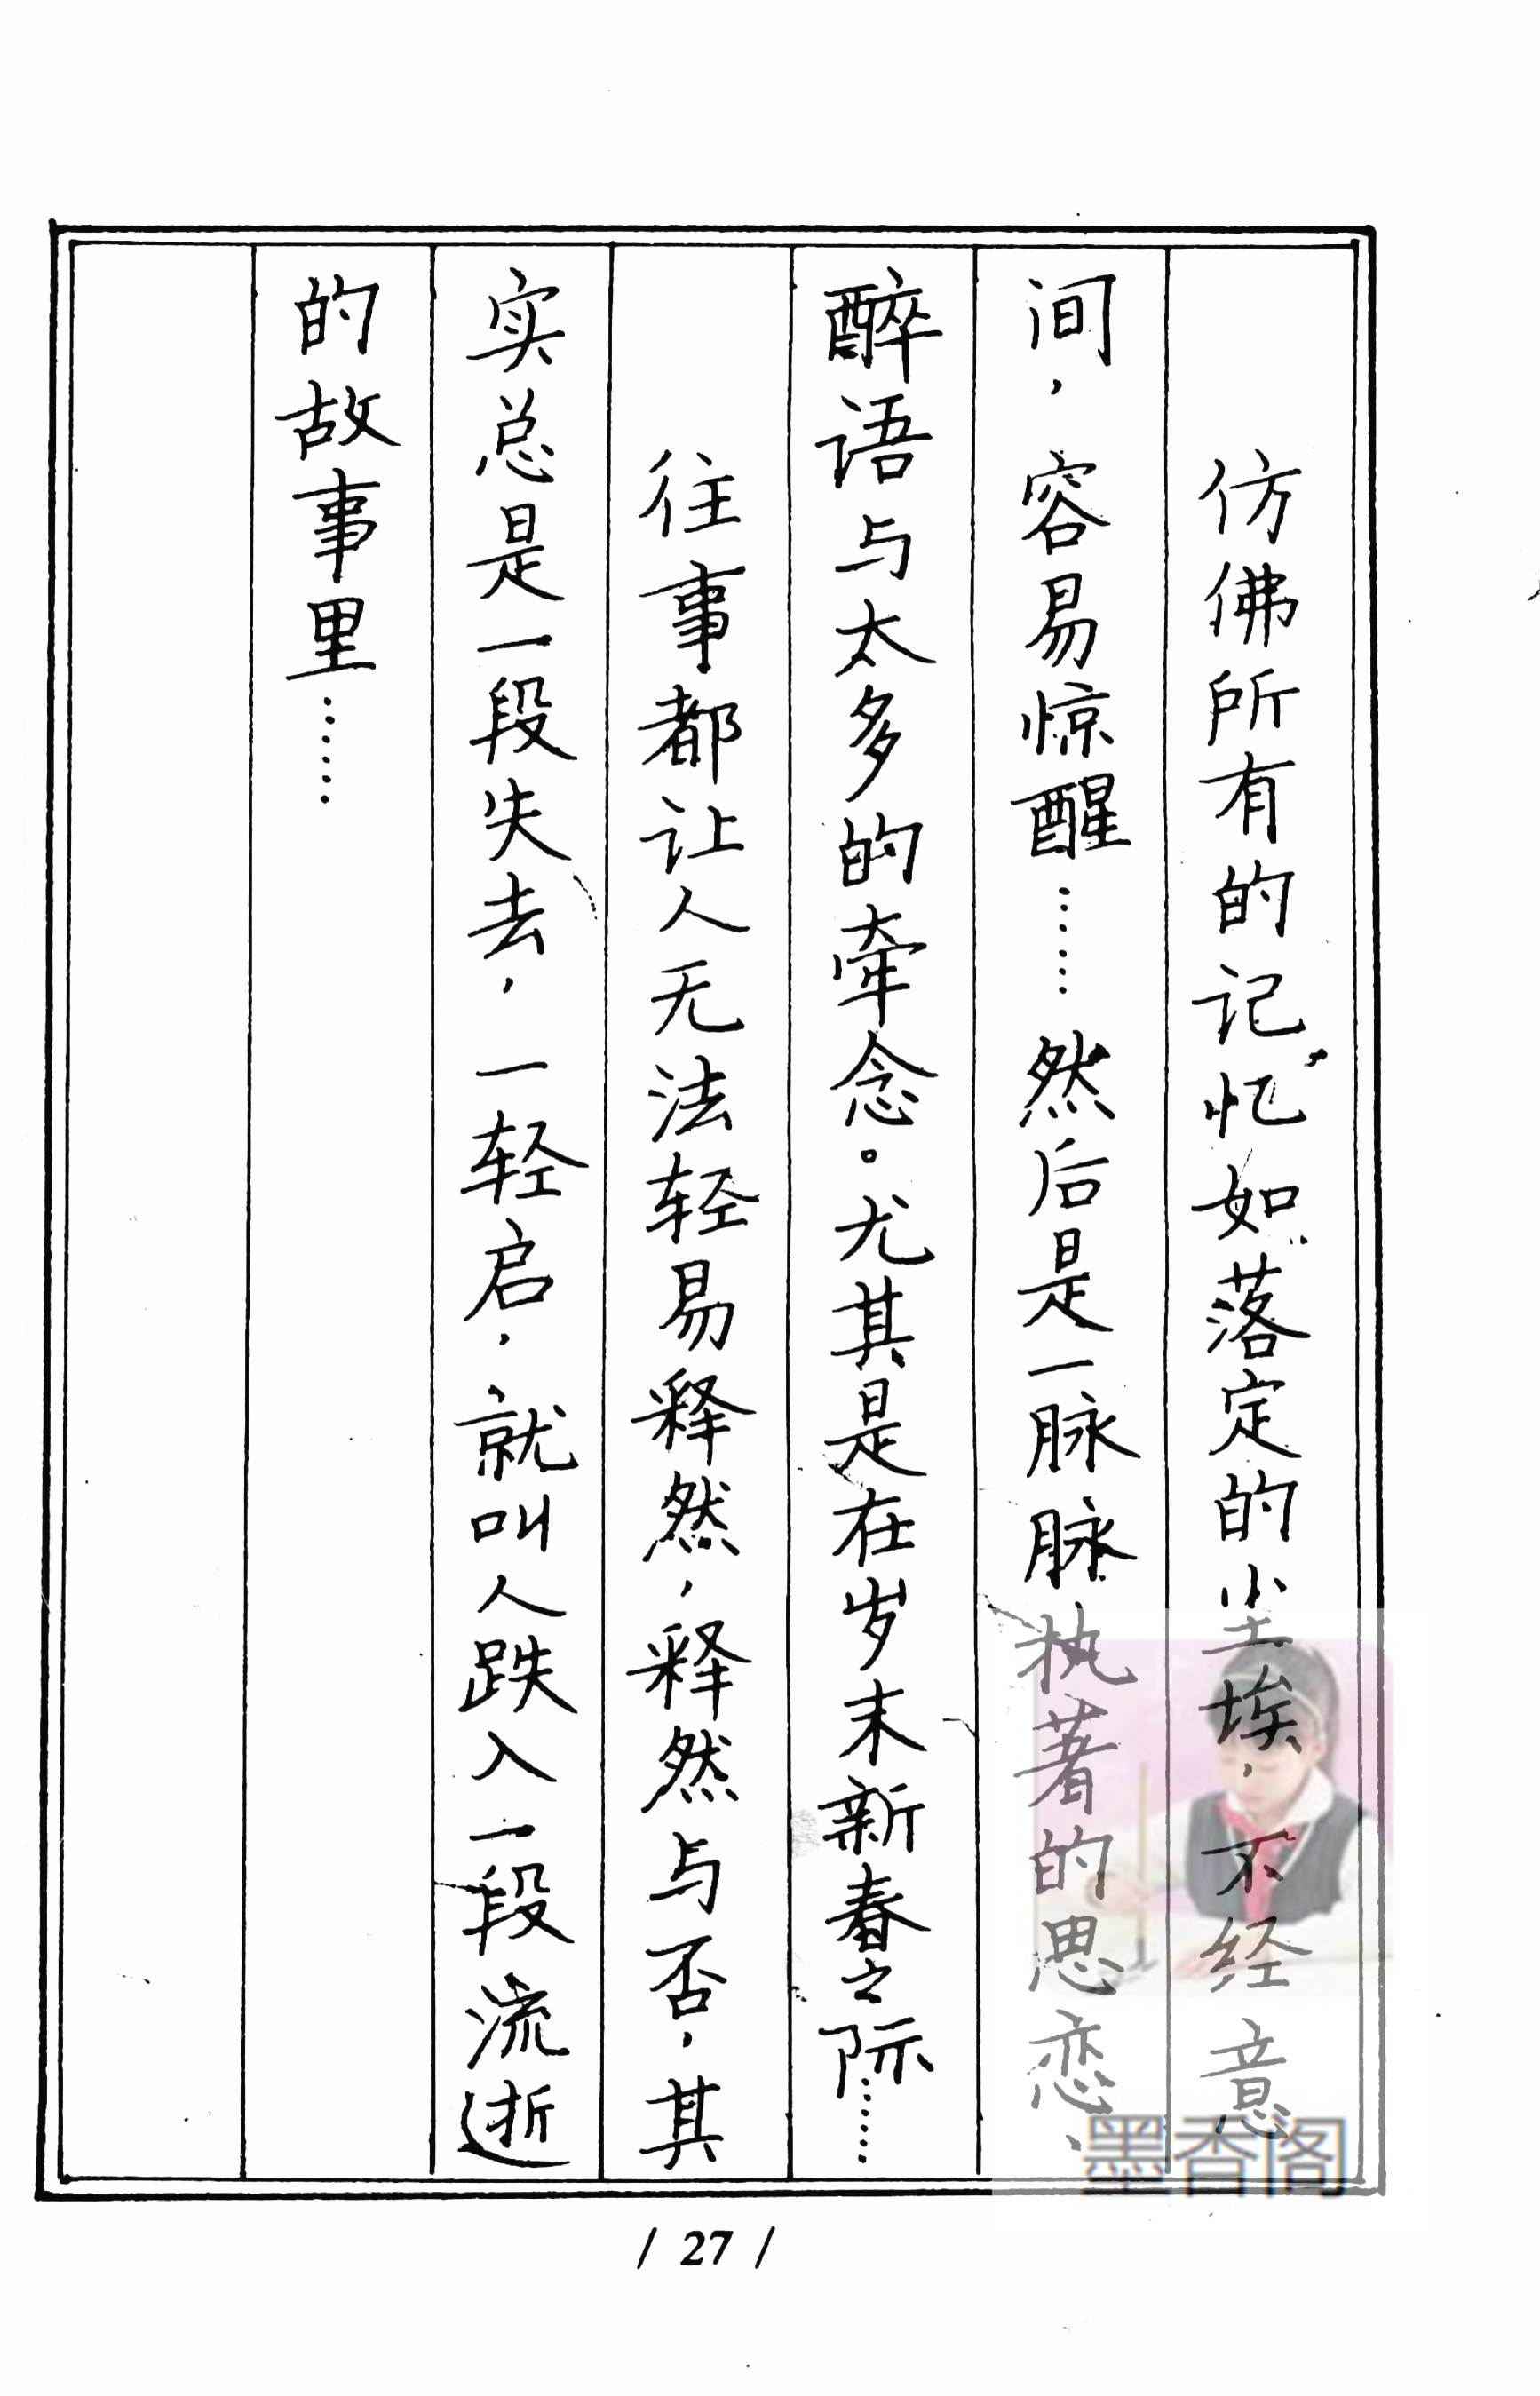 仿佛所有的记忆如落定的尘埃，不经意
间，容易惊醒……然后是一脉脉执著的思恋、
醉语与太多的牵念。尤其是在岁末新春之际……
往事都让人无法轻易释然，释然与否，其
实总是一段失去，一轻启，就叫人跌入一段流逝
的故事里……
墨香阁
/ 27 /